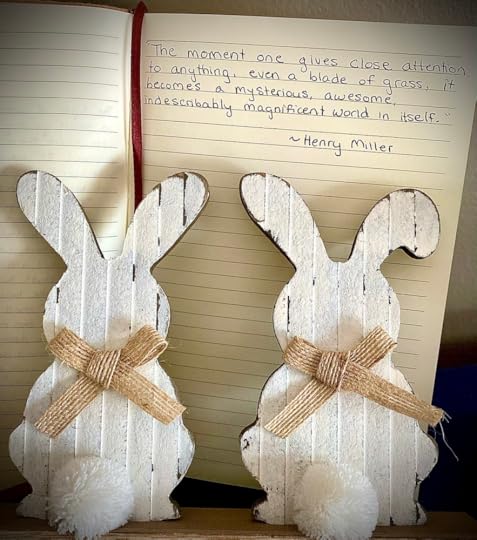 "The moment one gives close attention
to anything, even a blade of grass, it
becomes a mysterious, awesome,
indescribably magnificent world in itself."
~Henry Miller